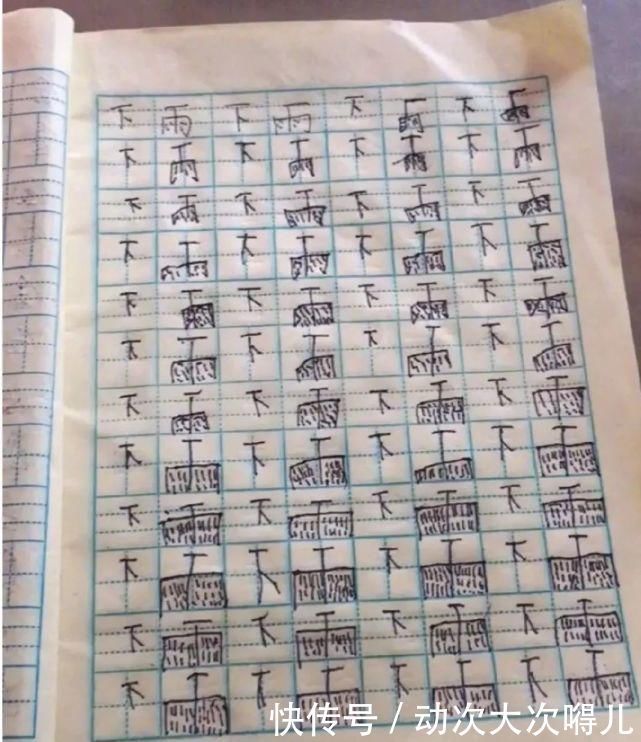 下 雨 下 雨 下 雨 下 雨
下 雨 下 雨 下 雨 下 雨
下 雨 下 雨 下 雨 下 雨
下 雨 下 雨 下 雨 下 雨
下 雨 下 雨 下 雨 下 雨
下 雨 下 雨 下 雨 下 雨
下 雨 下 雨 下 雨 下 雨
下 雨 下 雨 下 雨 下 雨
下 雨 下 雨 下 雨 下 雨
下 雨 下 雨 下 雨 下 雨
下 雨 下 雨 下 雨 下 雨
下 雨 下 雨 下 雨 下 雨
快传号 / 动次大次嘚儿